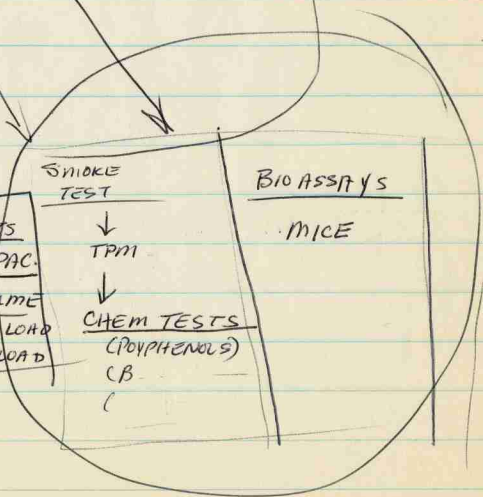 SMOKE
TEST
TPM
CHEM TESTS
(POYPHENOLS)
(B
(
BIO ASSAYS
MICE
TS
PAC.
LME
LOAD
LOAD